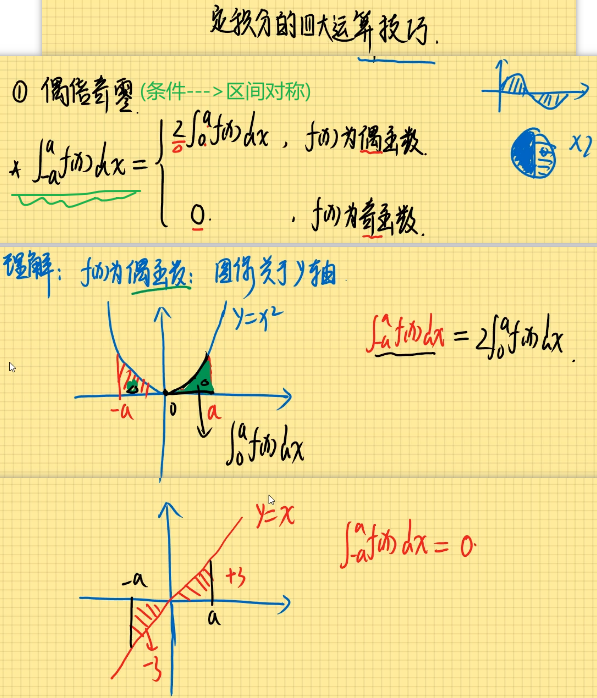 定积分的四大运算技巧.
① 偶倍奇零 (条件--->区间对称)
* ∫_{-a}^{a} f(x)dx = { 2∫_0^a f(x)dx , f(x)为偶函数.
0. , f(x)为奇函数.
×2
理解: f(x)为偶函数: 图像关于y轴
y=x²
∫_{-a}^{a} f(x)dx = 2∫_0^a f(x)dx.
-a 0 a
∫_0^a f(x)dx
y=x
∫_{-a}^{a} f(x)dx = 0.
-a +3
a
-3